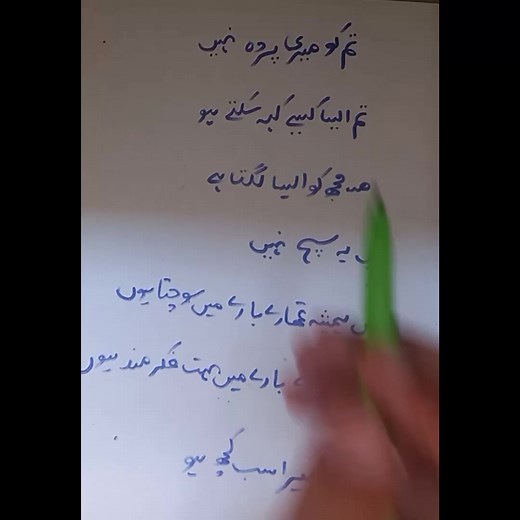 تم کو میری پرده نہیں
تم ایسا کیسے کہہ سکتے ہو
مجھ کو ایسا لگتا ہے
یہ سچ نہیں
ہمیشہ تمھارے بارے میں سوچتا ہوں
بارے میں بہت فکر مند ہوں
سب کچھ ہو